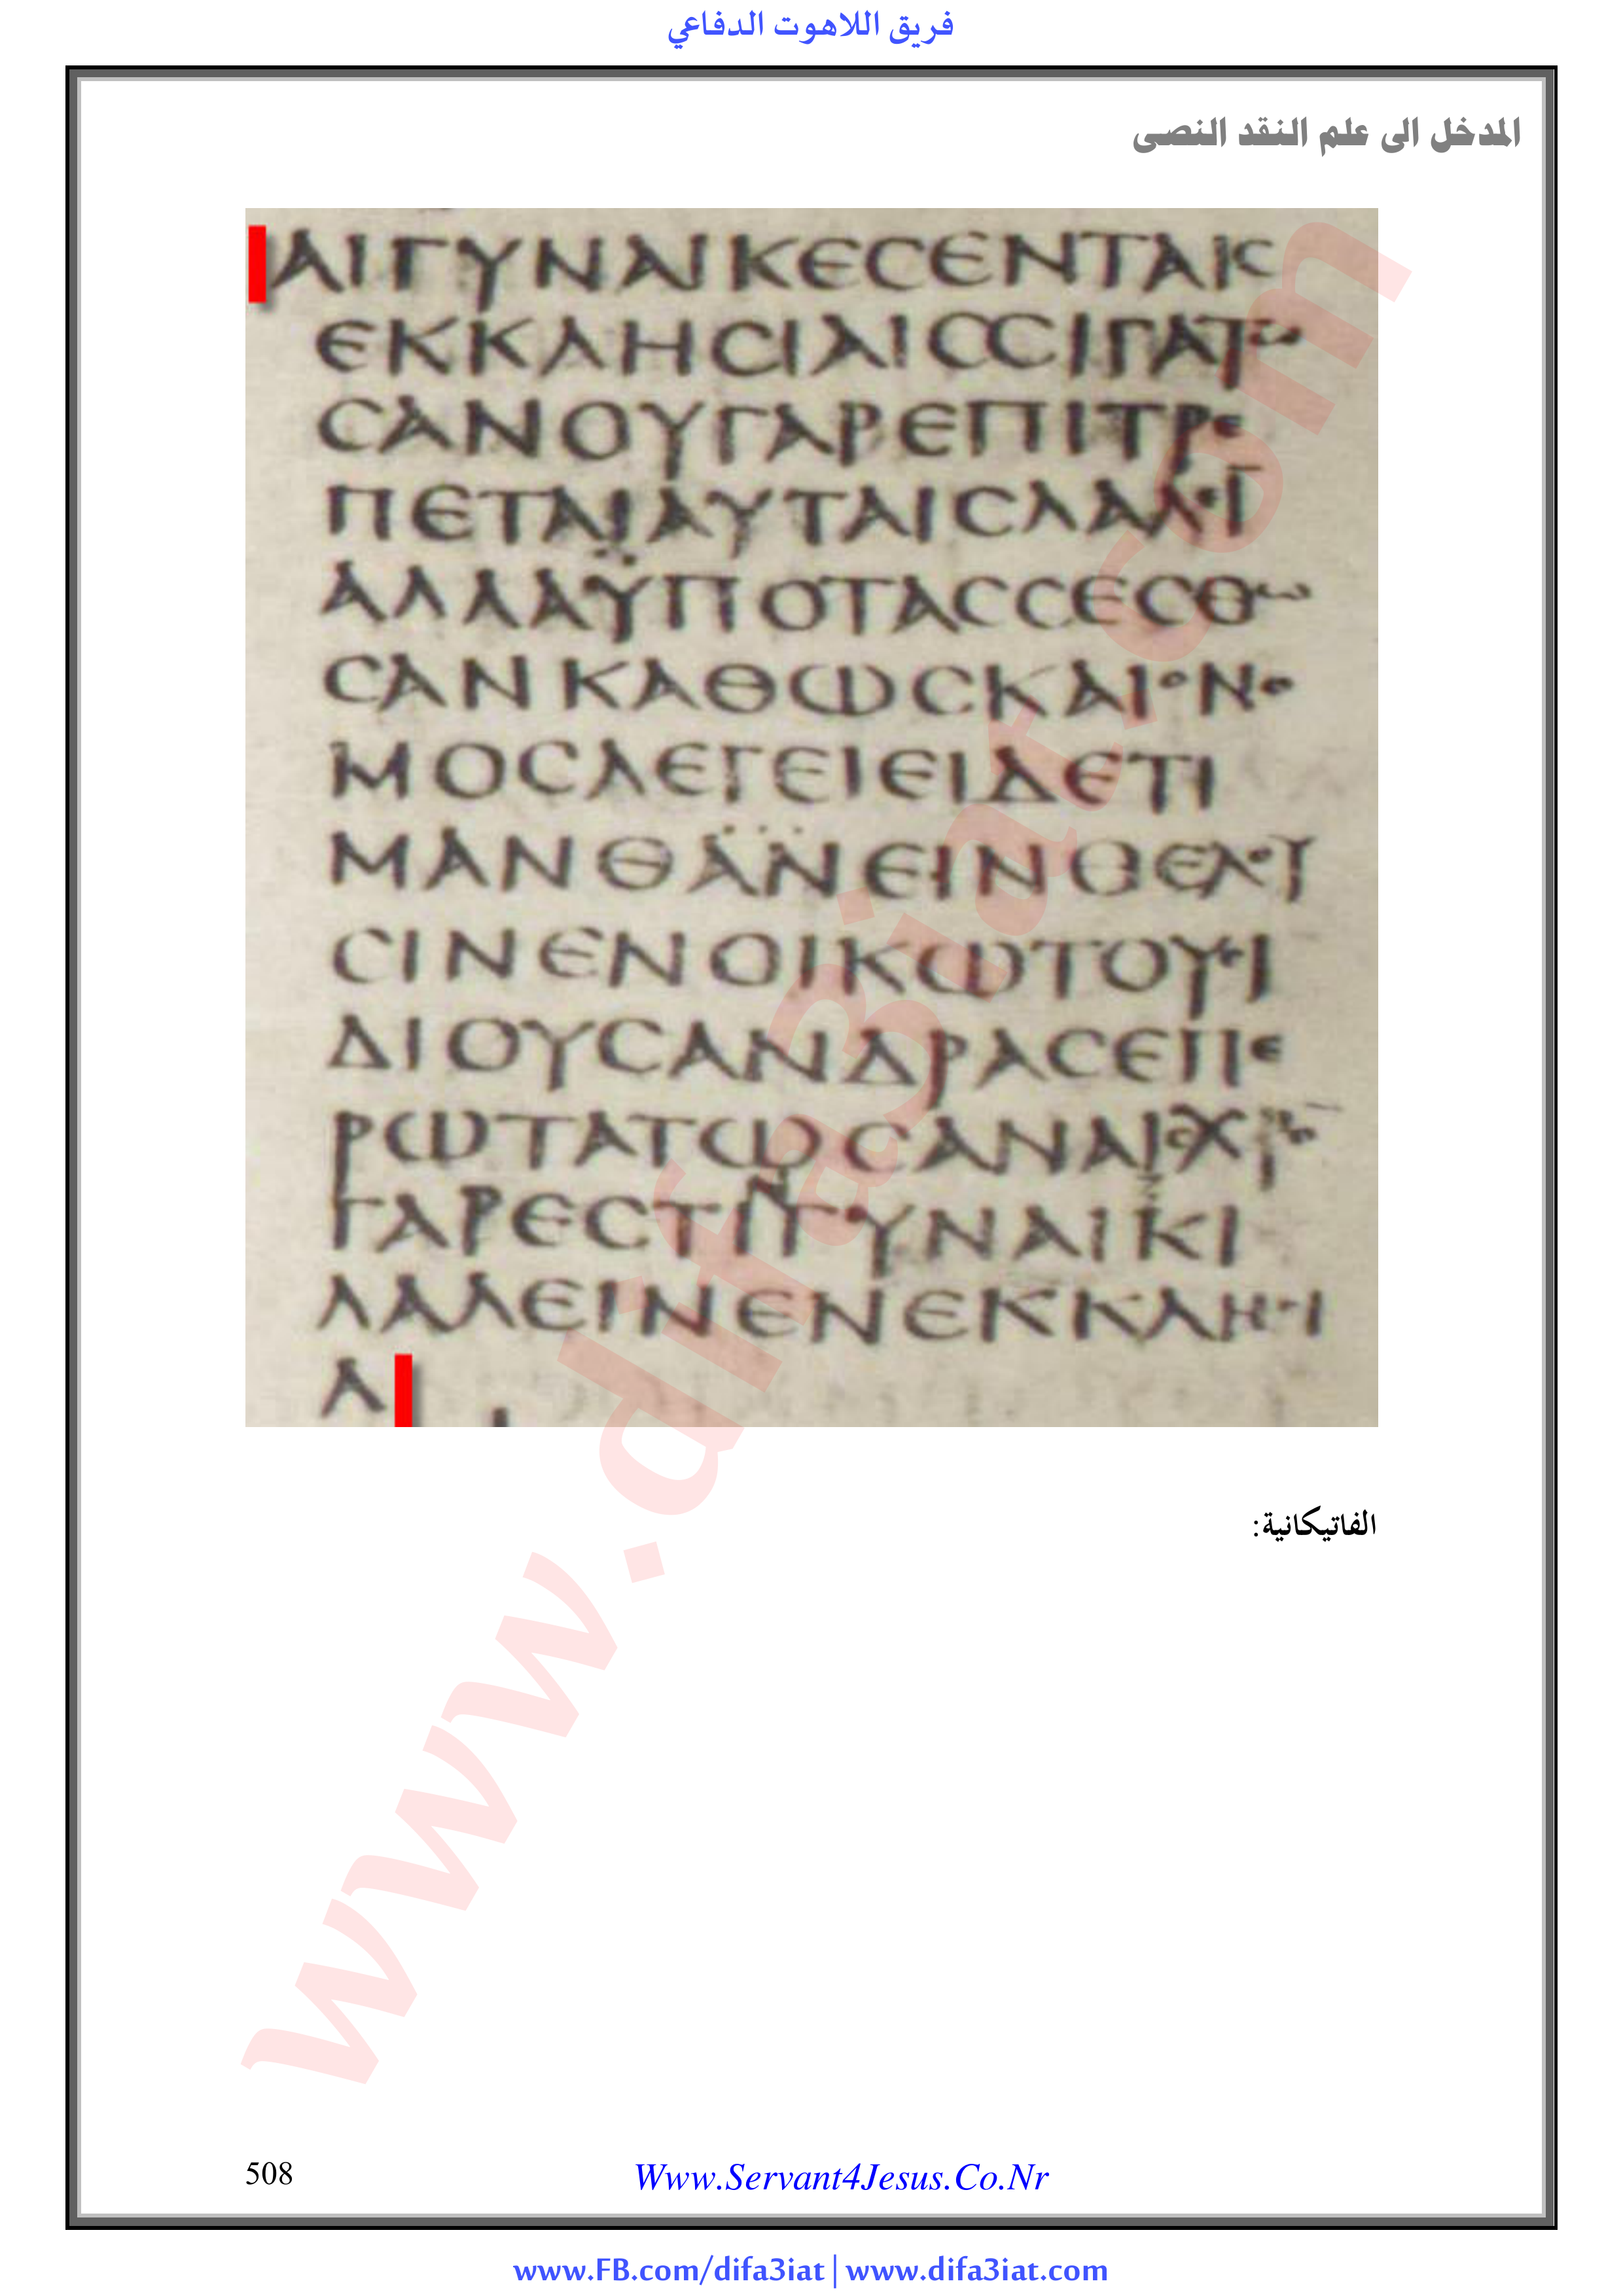 فريق اللاهوت الدفاعي
المدخل الى علم النقد النصى
ΑΙΓΥΝΑΙΚΕϹΕΝΤΑΙϹ
ΕΚΚΛΗϹΙΑΙϹϹΙΓΑΤΩ
ϹΑΝΟΥΓΑΡΕΠΙΤΡΕ
ΠΕΤΑΙΑΥΤΑΙϹΛΑΛΕΙ̅
ΑΛΛΑΫΠΟΤΑϹϹΕϹΘΩ
ϹΑΝΚΑΘΩϹΚΑΙΟΝΟ
ΜΟϹΛΕΓΕΙΕΙΔΕΤΙ
ΜΑΝΘΑΝΕΙΝΘΕΛΟΥ
ϹΙΝΕΝΟΙΚΩΤΟΥϹΙ
ΔΙΟΥϹΑΝΔΡΑϹΕΠΕ
ΡΩΤΑΤΩϹΑΝΑΙϹΧΡΟ̅
ΓΑΡΕϹΤΙΝΓΥΝΑΙΚΙ
ΛΑΛΕΙΝΕΝΕΚΚΛΗϹΙ
Α
الفاتيكانية:
www.difa3iat.com
508
Www.Servant4Jesus.Co.Nr
www.FB.com/difa3iat | www.difa3iat.com